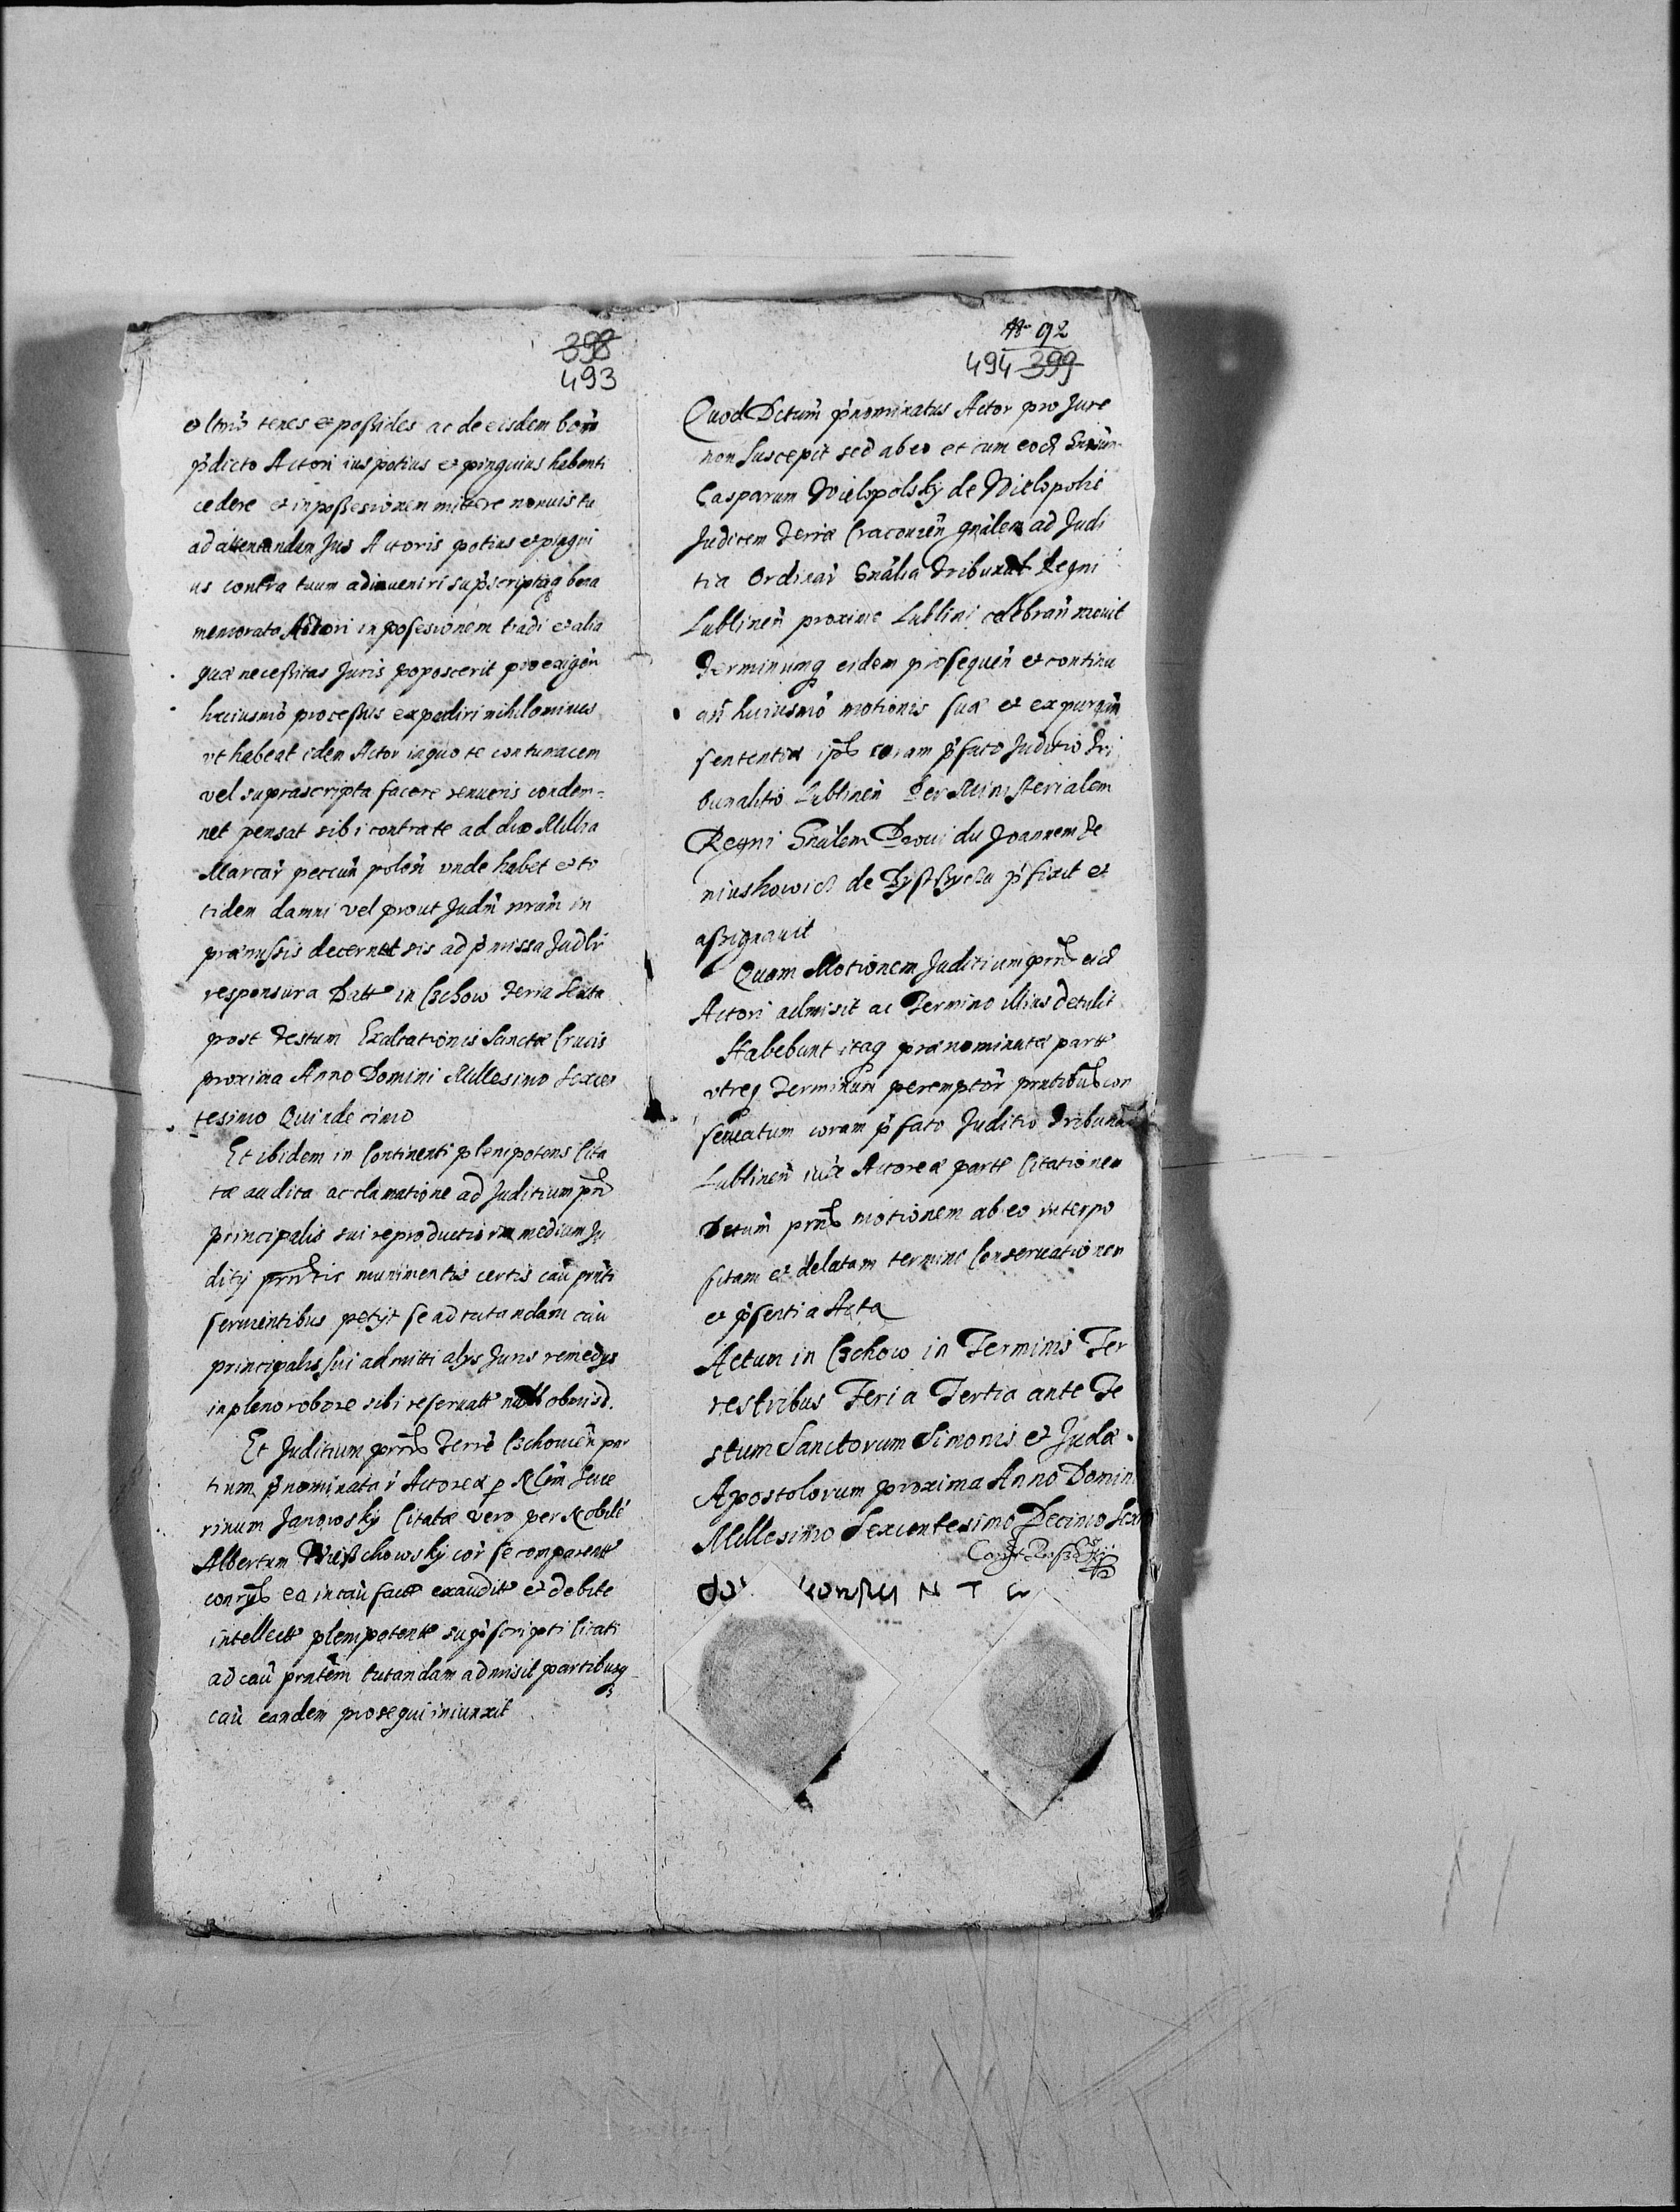 398
493
tenes et possides ac de eisdem bonis
p̃dicto Actori ius potius et pinguius habenti
cedere et in possessionem mittere
ad attentandum Jus Actoris potius et pingui
us contra tuum adinueniri sup̃scriptaq bona
memorato Actori in posesionem tradi et alia
quæ necessitas Juris poposcerit pro exigen̄
huiusmō processus expediri nihilominus
vt habeat idem Actor in quo te contumacem
vel suprascripta facere renueris condem=
net pensat sibi contra te ad duo Millia
Marcar̄ pecun̄ polon̄ vnde habet et to
tidem damni vel prout Judm̄ nrum̄ in
præmissis decernet sis ad p̃missa Judlr̄
responsura Datt in Czchow feria Sexta
post Festum Exaltationis Sanctæ Crucis
proxima Anno Domini Millesimo Sexcen
tesimo Quindecimo
Et ibidem in Continenti plenipotens Cita
tæ audita acclamatione ad Juditium
principalis sui reproductis in medium Ju
ditij munimentis certis cau prnti
seruientibus petijt se ad tutandam cau
principalis sui admitti alys Juris remedys
in pleno robore sibi reseruatt
Et Juditium prns Terrē Czchouien̄ par
tium p̃nominatar̄ Actoreæ p Seue
rinum Janowsky Citatæ vero per Nobilē
Albertum cor̄ se comparentt
ea in cau factt exauditt et debite
intellectt plenipotentē sup̃scripti Citati
ad cau prntēm tutandam admisit partibusq
cau eandem prosequi iniunxit
No 92
494 399
Quod Dctum̄ p̃nominatus Actor pro Jure
non Suscepit sed ab eo et cum eod
Casparum Wielopolsky de Wielopolie
Judicem Terræ Cracouien̄ gn̄alem ad Judi
tia Ordinar̄ Gn̄alia Tribunal Regni
Lublinen̄ proxime Lublini celebran̄ mouit
Terminumq eidem prosequen̄ et continu
an̄ huiusmō motionis suæ et expurgan̄
sententiæ ips̄ coram p̃fato Juditio Tri
bunalitio Lublinen̄ Per Ministerialem
Regni Gn̄alem Proui du Joannem
de p̃fixit et
assignauit
Quam Motionem Juditium prns eid
Actori admisit ac Termino illius detulit
Habebunt itaq prænominatæ partt
vtreq Terminum peremptor̄ prntibus con
seruatum coram p̃fato Juditio Tribunal
Lublinen̄ Actoreæ parte Citationem
Dctum̄ prns motionem ab eo interpo
sitam et delatam termini Conseruationem
et p̃sentia Acta
Actum in Czchow in Terminis Ter
restribus Feria Tertia ante Fe
stum Sanctorum Simonis et Judæ
Apostolorum proxima Anno Domini
Millesimo Sexcentesimo Decimo Sex